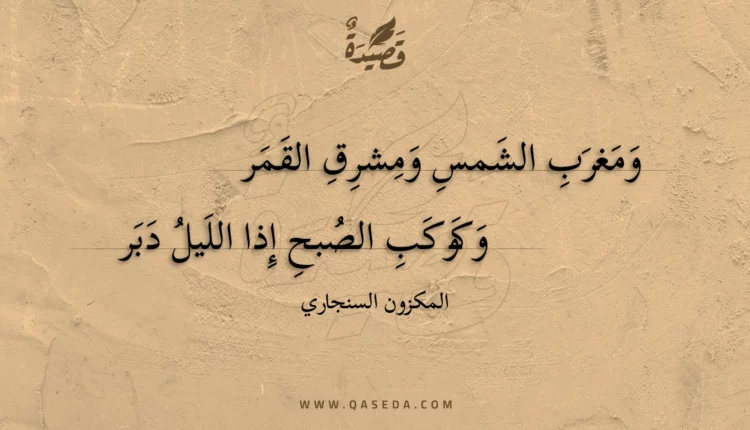 قَصِيدَةٌ
وَمَغرَبِ الشَمسِ وَمِشرِقِ القَمَر
وَكَوكَبِ الصُبحِ إِذا اللَيلُ دَبَر
المكزون السنجاري
WWW.QASEDA.COM